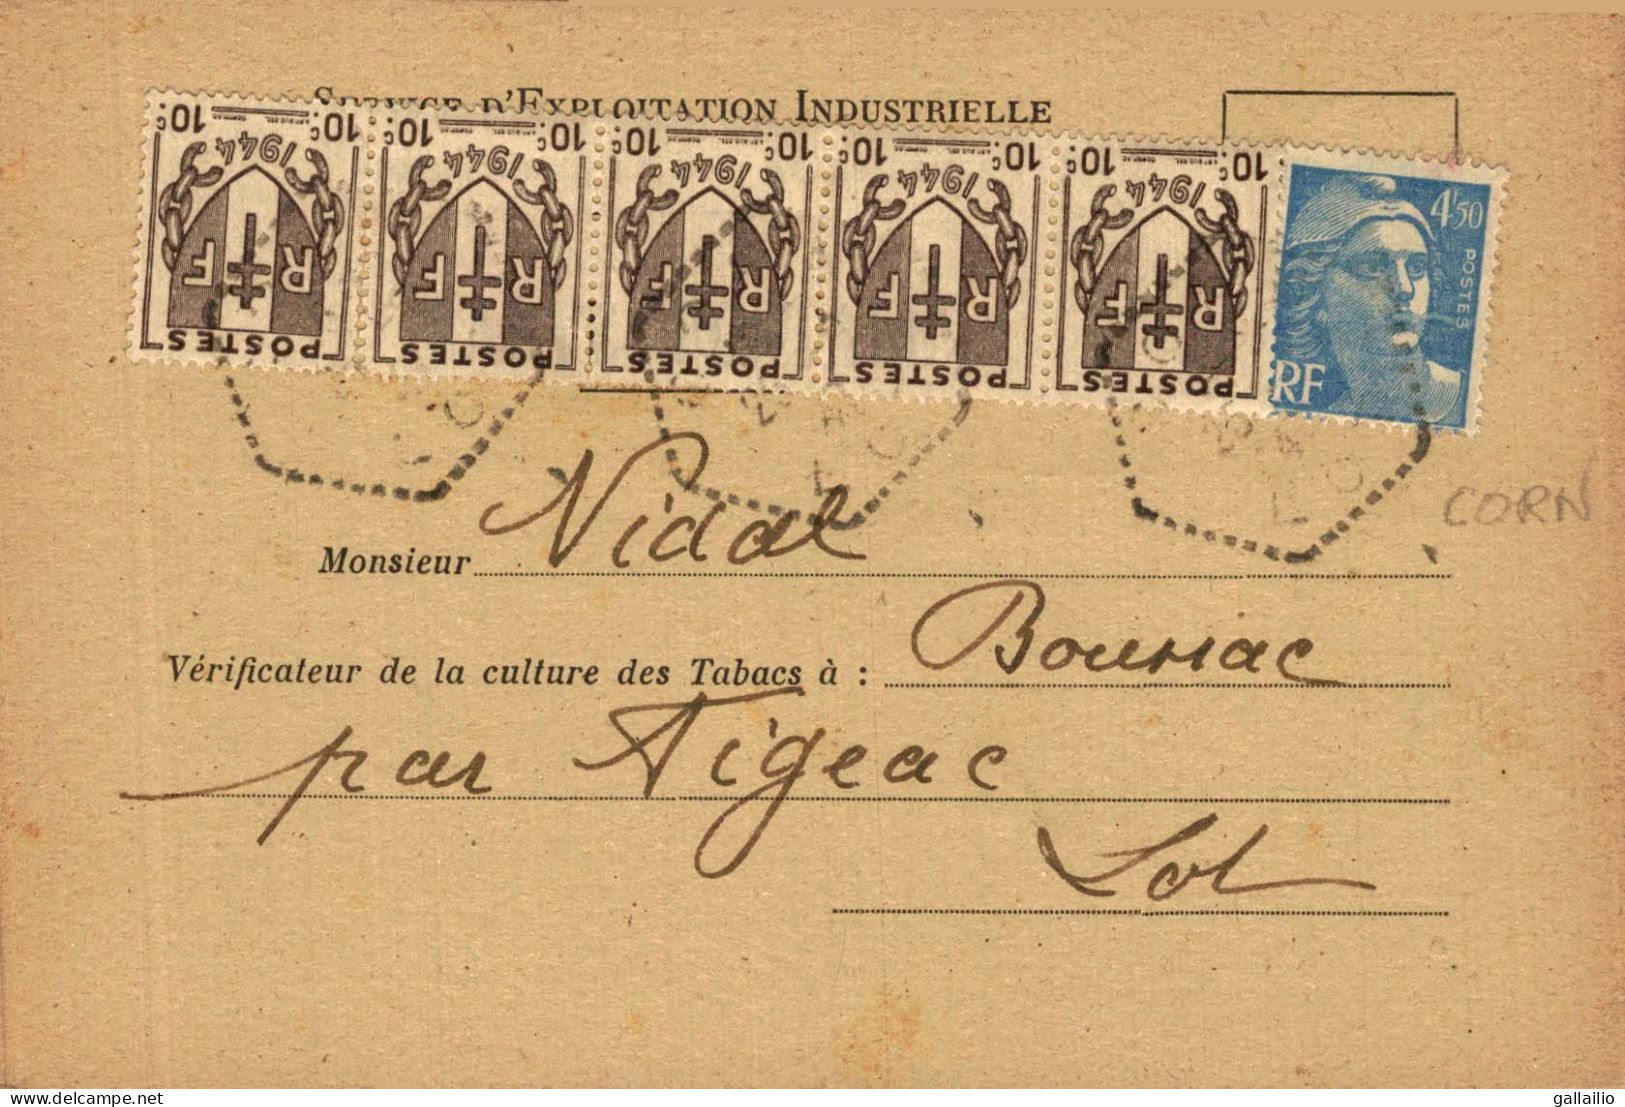 SERVICE D'EXPLOITATION INDUSTRIELLE
10c 10c 10c 10c 10c 10c 10c 10c 10c 10c
1944 1944 1944 1944 1944
RF RF RF RF RF
POSTES POSTES POSTES POSTES POSTES
4f50
POSTES
RF
CORN
Monsieur Vidal
Vérificateur de la culture des Tabacs à : Boussac
par Figeac
Lot
delcampe.net
gallailio